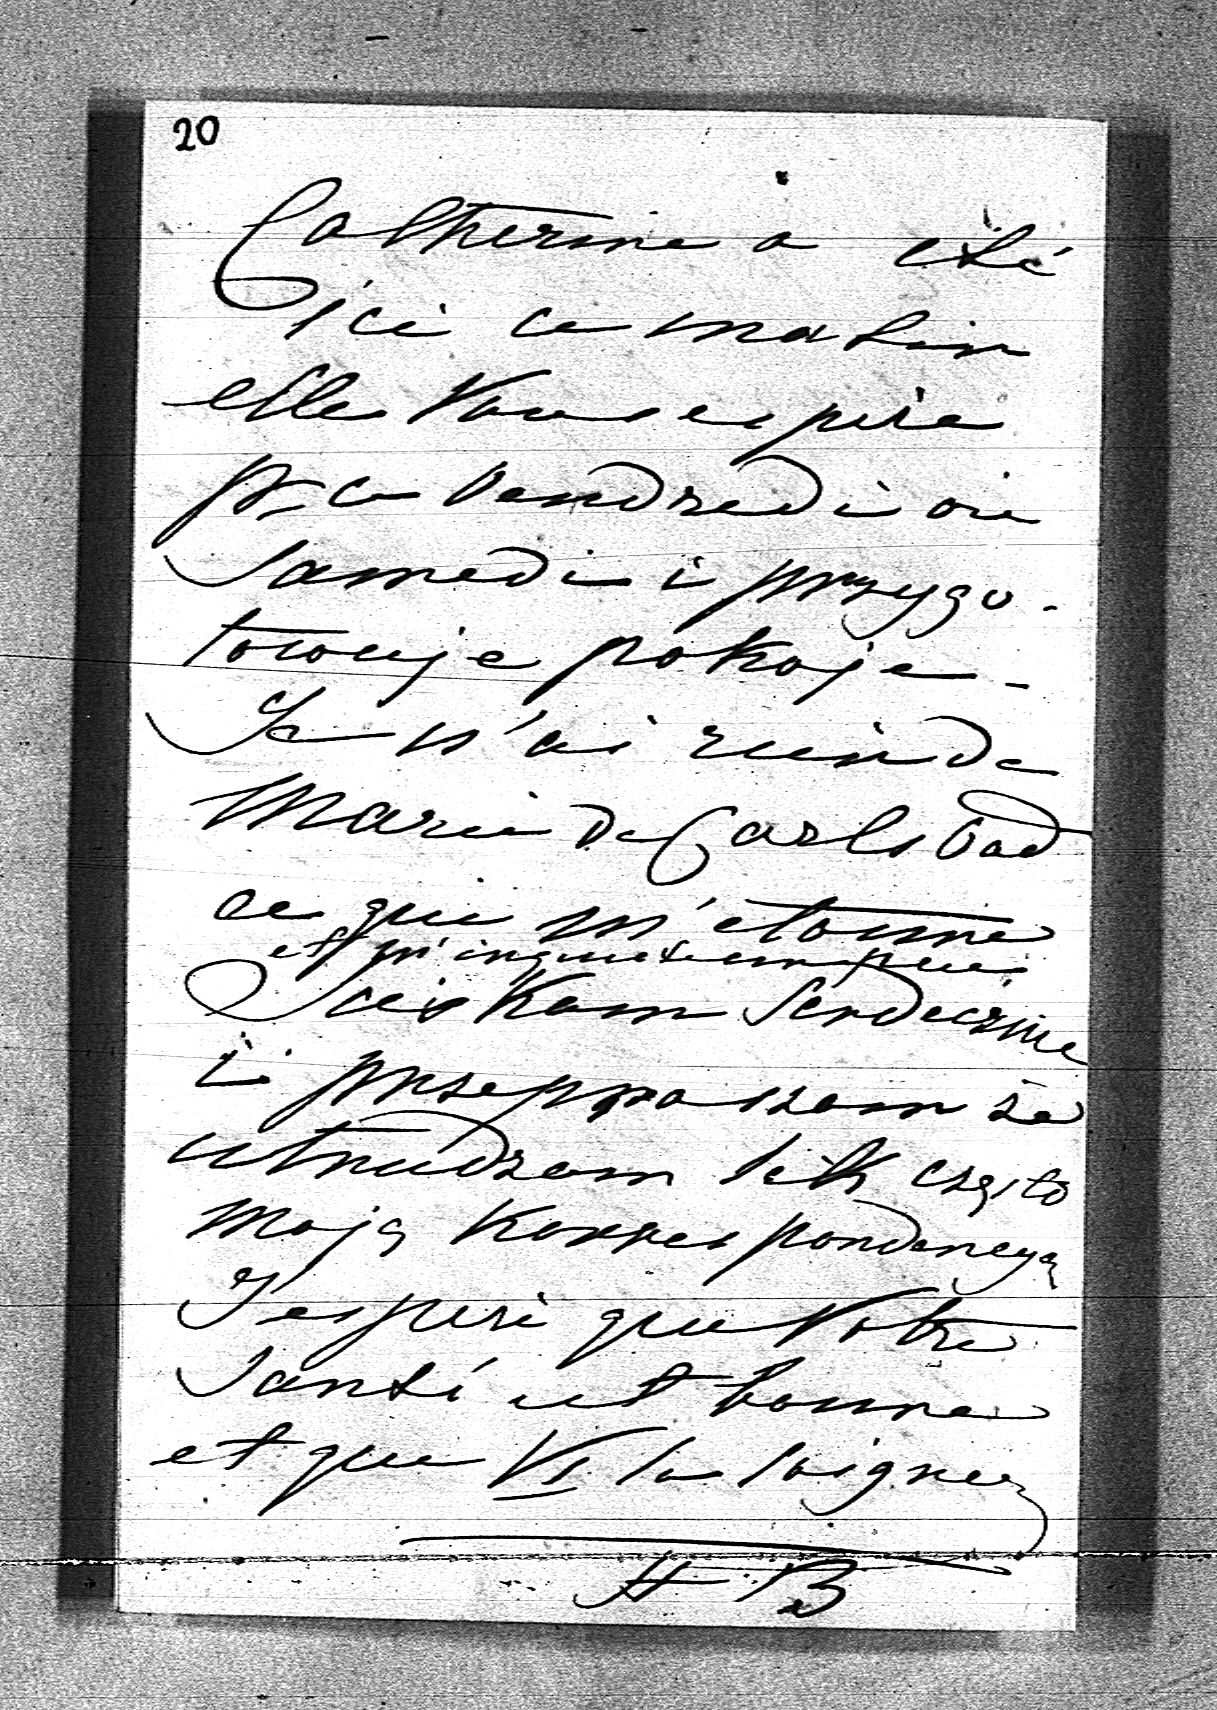 20
Catherine a été
ici ce matin
elle Vous espere
pr ce Vendredi ou
Samedi i przygo-
towuje pokoje -
Je n'ai rien de
Marie de Carlsbad
ce qui m'etonne
et m'inquiete un peu
Sciskam Serdecznie
i przepraszam że
utrudzam tak często
moją korrespondencyą
J'espere que Votre
Santé est bonne
et que Vs la soignez
H B